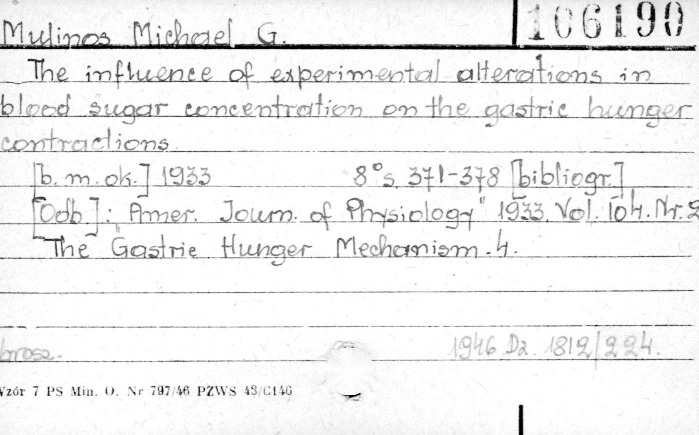 Mulinos Michael G.
106190
The influence of experimental alterations in
blood sugar concentration on the gastric hunger
contractions
[b.m.ok.] 1933 8° s. 371-378 [bibliogr.]
[Odb.]: "Amer. Journ. of Physiology" 1933. Vol. 104. Nr. 2
The Gastric Hunger Mechanism. 4.
brosz. 1946 Dz. 1812/224.
Wzór 7 PS Min. O. Nr 797/46 PZWS 43/C146